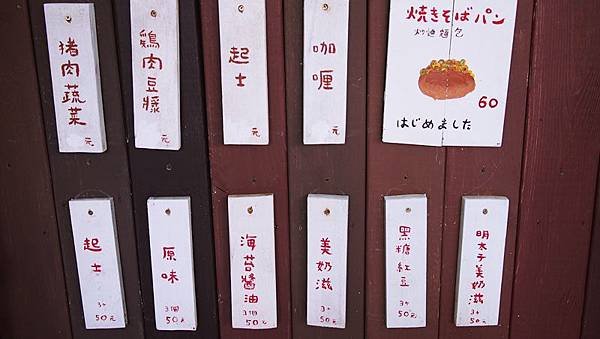 猪肉蔬菜
元
鷄肉豆漿
元
起士
元
咖喱
元
焼きそばパン
60
はじめました
起士
3ヶ
50元
原味
3個
50元
海苔醬油
3ヶ
50元
美奶滋
3ヶ
50元
黑糖紅豆
3ヶ
50元
明太子美奶滋
3ヶ
50元